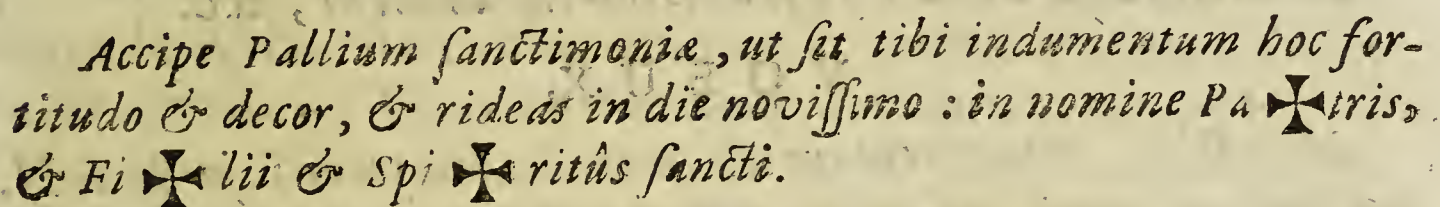 Accipe Pallium ſanctimoniæ, ut ſit tibi indumentum hoc for-
titudo & decor, & rideas in die noviſſimo : in nomine Pa ✠ tris,
& Fi ✠ lii & Spi ✠ ritûs ſancti.